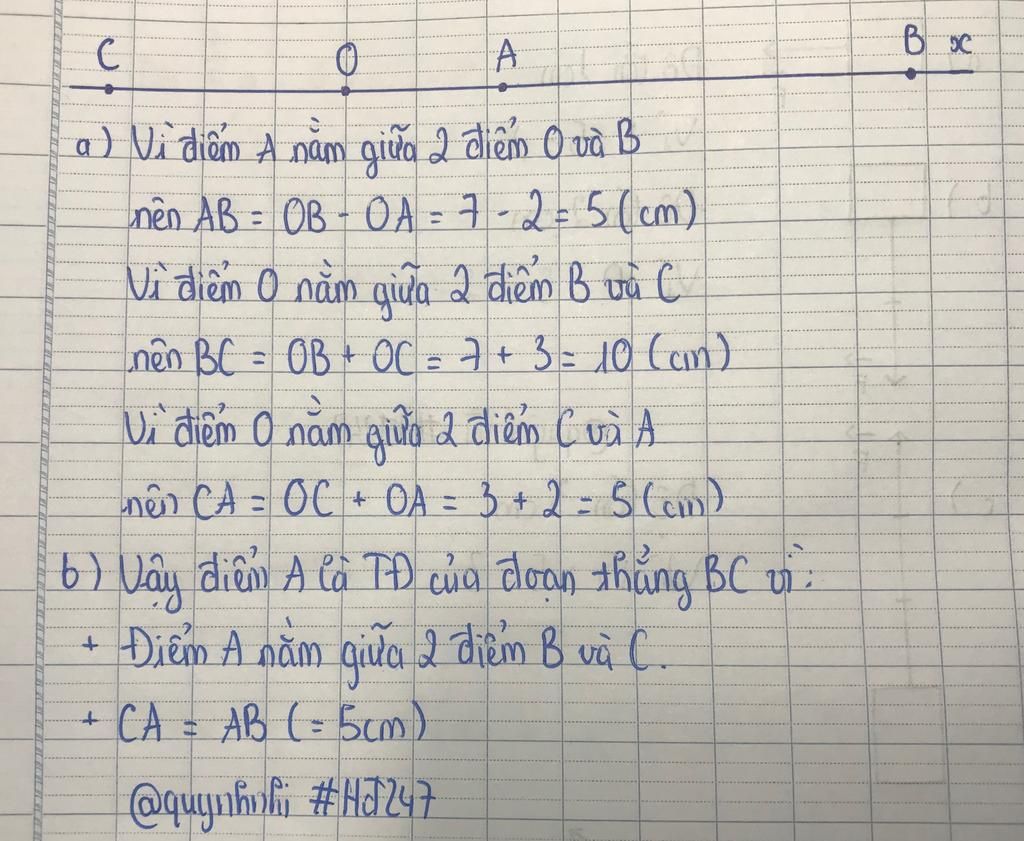 C O A B x
a) Vì điểm A nằm giữa 2 điểm O và B
nên AB = OB - OA = 7 - 2 = 5 (cm)
Vì điểm O nằm giữa 2 điểm B và C
nên BC = OB + OC = 7 + 3 = 10 (cm)
Vì điểm O nằm giữa 2 điểm C và A
nên CA = OC + OA = 3 + 2 = 5 (cm)
b) Vậy điểm A là TĐ của đoạn thẳng BC vì:
+ Điểm A nằm giữa 2 điểm B và C.
+ CA = AB (= 5cm)
@quynhnhi #Hđ247